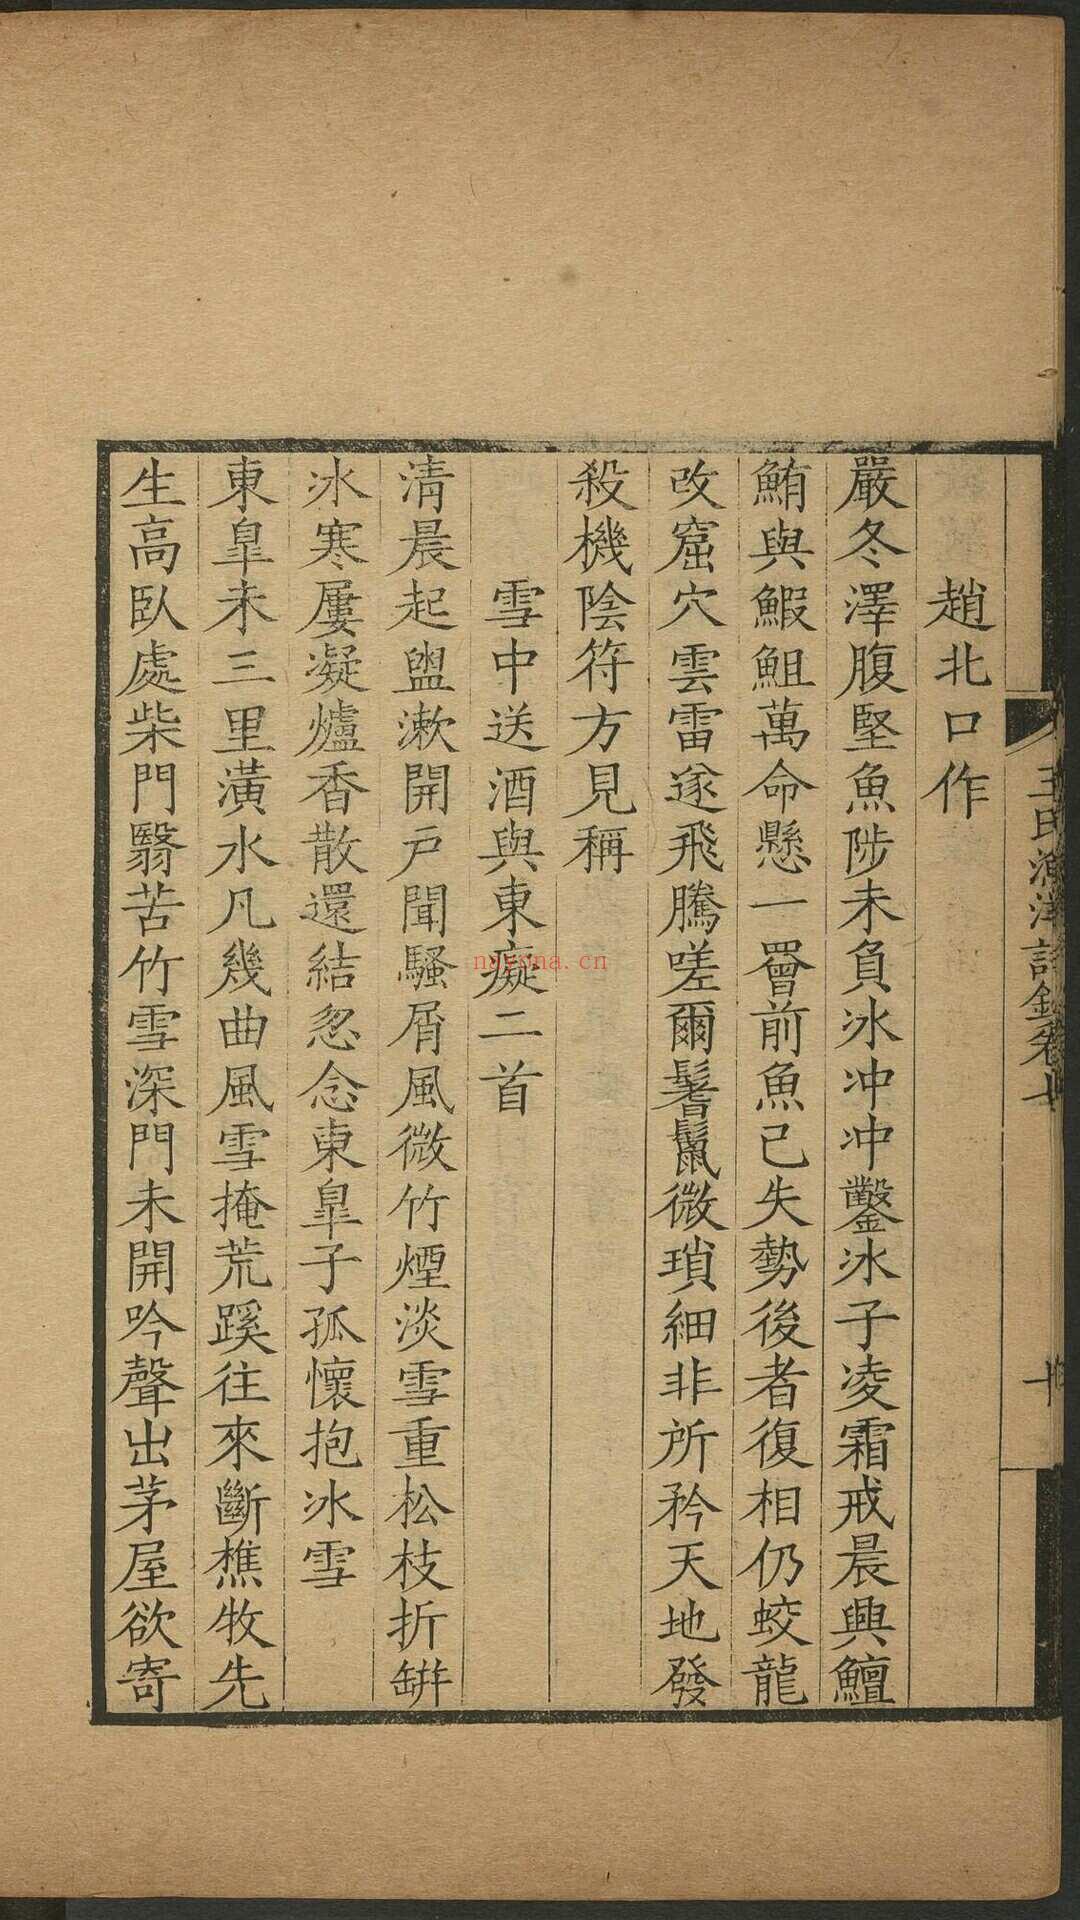 趙北口作
嚴冬澤腹堅魚陟未負冰冲冲鑿冰子凌霜戒晨興鱣
鮪與鰕鮔萬命懸一罾前魚已失勢後者復相仍蛟龍
改窟穴雲雷遂飛騰嗟爾鬐鬣微瑣細非所矜天地發
殺機陰符方見稱
雪中送酒與東癡二首
清晨起盥漱開戸聞騷屑風微竹煙淡雪重松枝折缾
冰寒屢凝爐香散還結忽念東臯子孤懷抱冰雪
東臯未三里潢水凡幾曲風雪掩荒蹊往來斷樵牧先
生高臥處柴門翳苦竹雪深門未開吟聲出茅屋欲寄
王氏漁洋詩鈔卷
nayona.cn